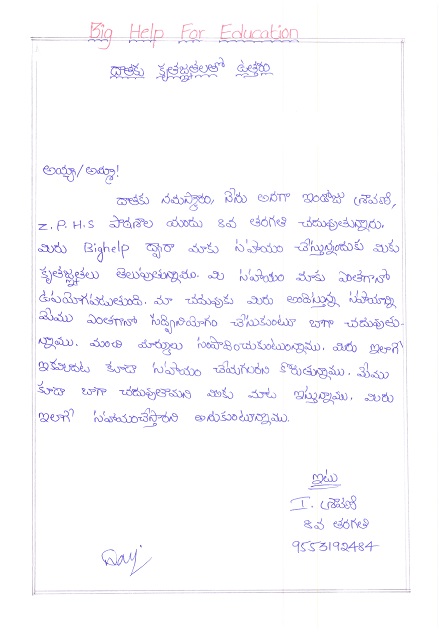 Big Help For Education
దాతకు కృతజ్ఞతలతో ఉత్తరం
అయ్యా/అమ్మా!
దాతకు నమస్కారం, నేను అనగా ఇందోజు శ్రావణి,
Z.P.H.S పాఠశాల యందు 8వ తరగతి చదువుతున్నాను.
మీరు Bighelp ద్వారా మాకు సహాయం చేస్తున్నందుకు మీకు
కృతజ్ఞతలు తెలుపుతున్నాము. మీ సహాయం మాకు ఎంతగానో
ఉపయోగపడుతుంది. మా చదువుకు మీరు అందిస్తున్న సహాయాన్ని
మేము ఎంతగానో సద్వినియోగం చేసుకుంటూ బాగా చదువుతు-
న్నాము. మంచి మార్కులు సంపాదించుకుంటున్నాము. మీరు ఇలాగే
ఇకమీదట కూడా సహాయం చేయగలరని కోరుతున్నాము. మేము
కూడా బాగా చదువుతామని మీకు మాట ఇస్తున్నాము. మీరు
ఇలాగే సహాయంచేస్తారని అనుకుంటున్నాము.
ఇట్లు
I. శ్రావణి
8వ తరగతి
9553192484